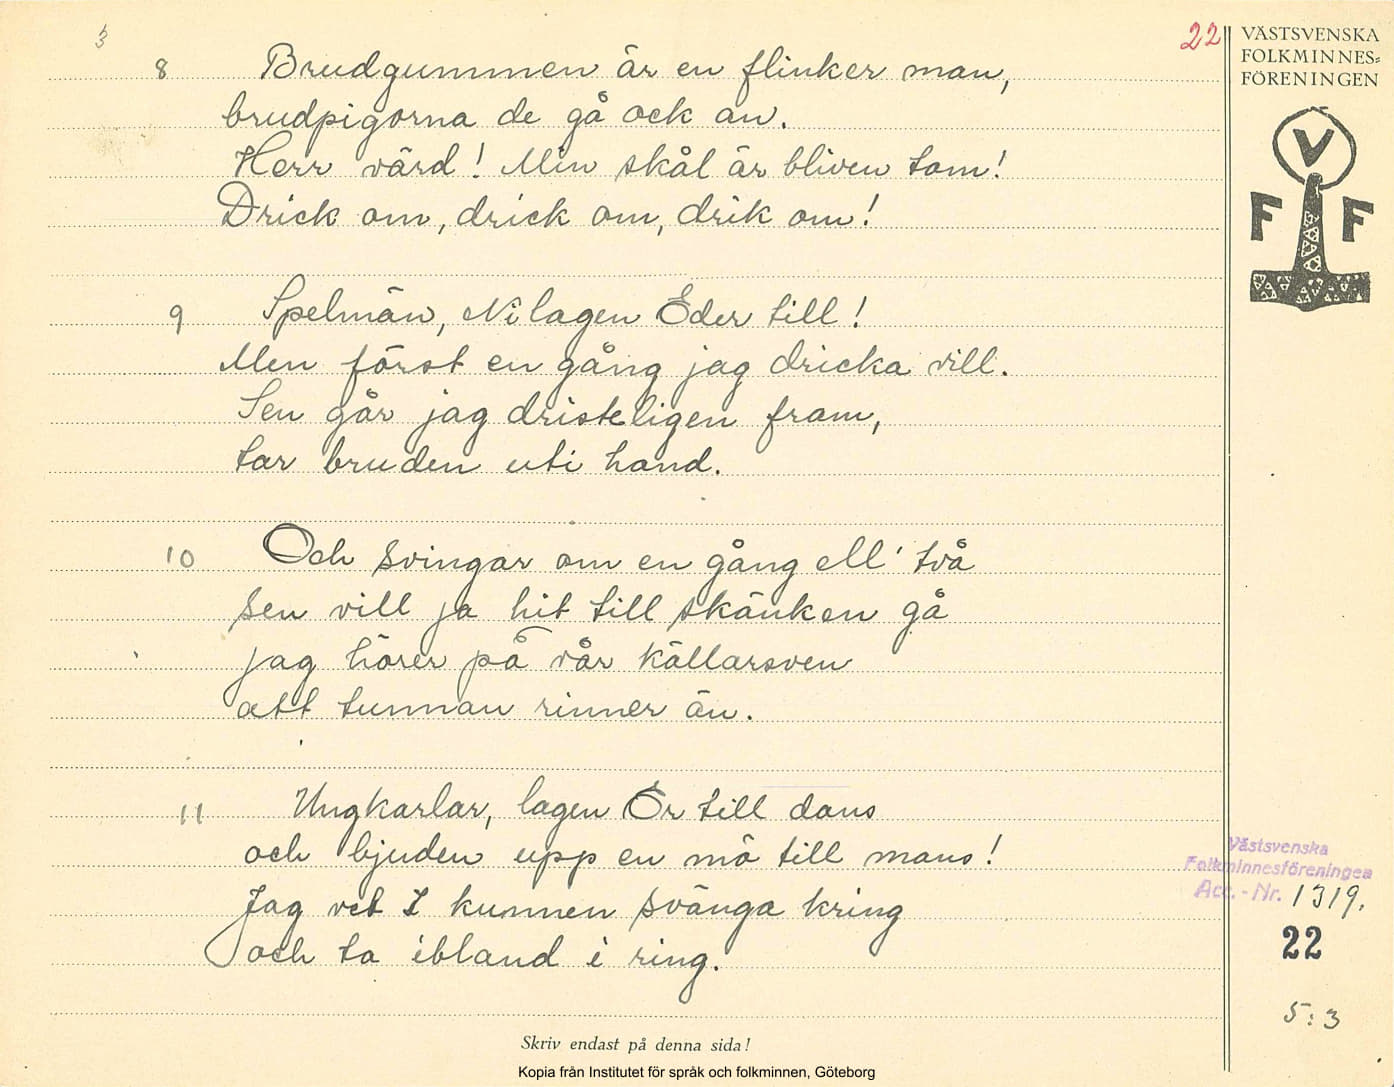 3
22
VÄSTSVENSKA
FOLKMINNES=
FÖRENINGEN
V
F F
8 Brudgummen är en flinker man,
brudpigorna de gå ock an.
Herr värd! Min skål är bliven tom!
Drick om, drick om, drik om!
9 Spelmän, Ni lagen Eder till!
Men först en gång jag dricka vill.
Sen går jag dristeligen fram,
tar bruden uti hand.
10 Och svingar om en gång ell' två
sen vill ja hit till skänken gå
jag hörer på vår källarsven
att tunnan rinner än.
11 Ungkarlar, lagen Er till dans
och bjuden upp en mö till mans!
Jag vet I kunnen svänga kring
och ta ibland i ring.
Västsvenska
Folkminnesföreningen
Acc. - Nr. 1319.
22
5:3
Skriv endast på denna sida!
Kopia från Institutet för språk och folkminnen, Göteborg